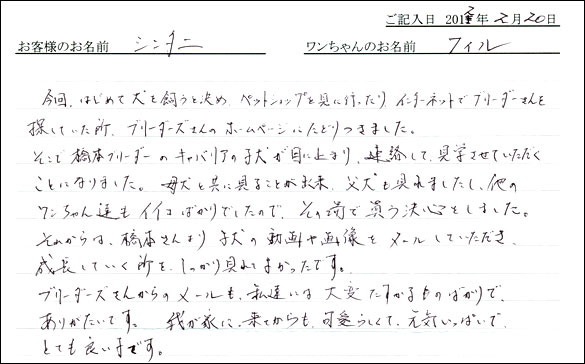 ご記入日 2012年 2月20日
お客様のお名前 シンタニ ワンちゃんのお名前 フィル
今回、はじめて犬を飼うと決め ペットショップを見に行ったり、インターネットでブリーダーさんを
探していた所、ブリーダーズさんのホームページにたどりつきました。
そこで橋本ブリーダーのキャバリアの子犬が目に止まり、連絡して、見学させていただく
ことになりました。母犬と共に見ることが出来、父犬も見れましたし、他の
ワンちゃん達もイイコばかりでしたので、その場で買う決心をしました。
それからは、橋本さんより子犬の動画や画像をメールしていただき、
成長していく所を、しっかり見れてよかったです。
ブリーダーズさんからのメールも、私達には大変たすかるものばかりで、
ありがたいです。 我が家に、来てからも、可愛らしくて、元気いっぱいで、
とても良い子です。